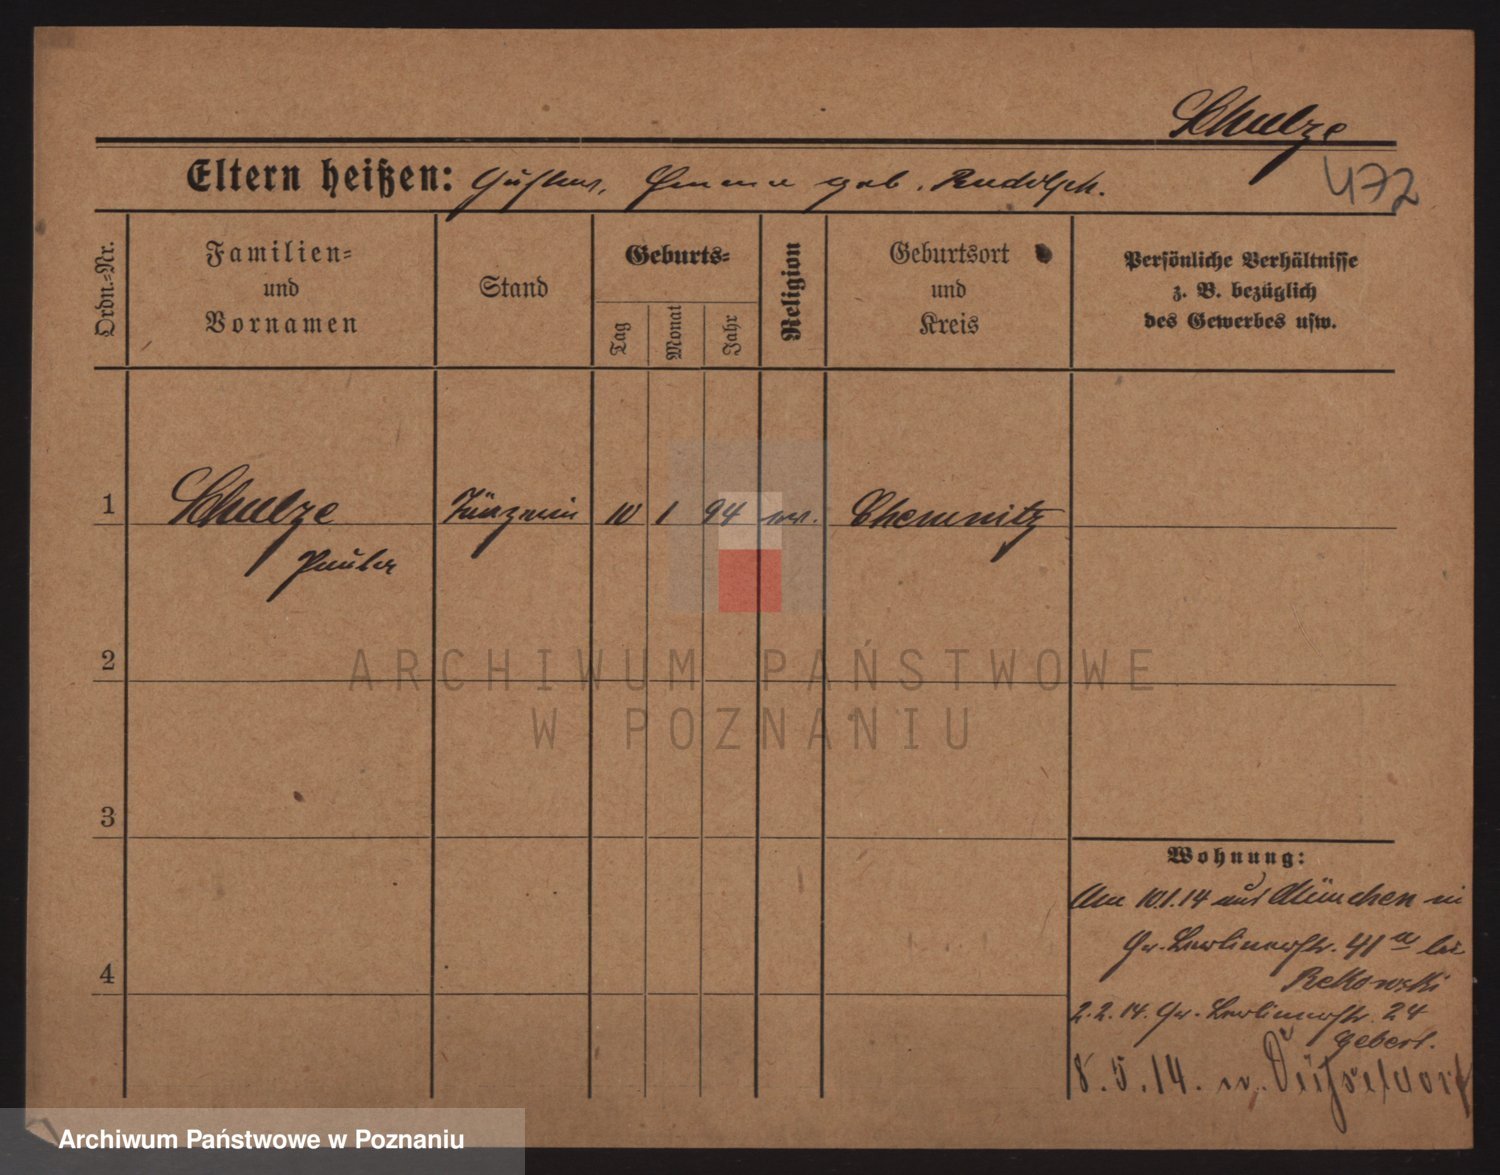 Schulze
472
Eltern heißen: Gustav, Emma geb. Rudolph.
Ordn.-Nr.
Familien-
und
Vornamen
Stand
Geburts-
Tag
Monat
Jahr
Religion
Geburtsort
und
Kreis
Persönliche Verhältnisse
z. B. bezüglich
des Gewerbes usw.
1 Schulze Tänzerin 10 1 94 ev. Chemnitz
Paula
2
3
4
Wohnung:
Am 10.1.14 aus München in
Gr. Berlinerstr. 41 a bei
Rekowski
2.2.14. Gr. Berlinerstr. 24
Gebert.
8.5.14. n. Düsseldorf
ARCHIWUM PAŃSTWOWE
W POZNANIU
Archiwum Państwowe w Poznaniu